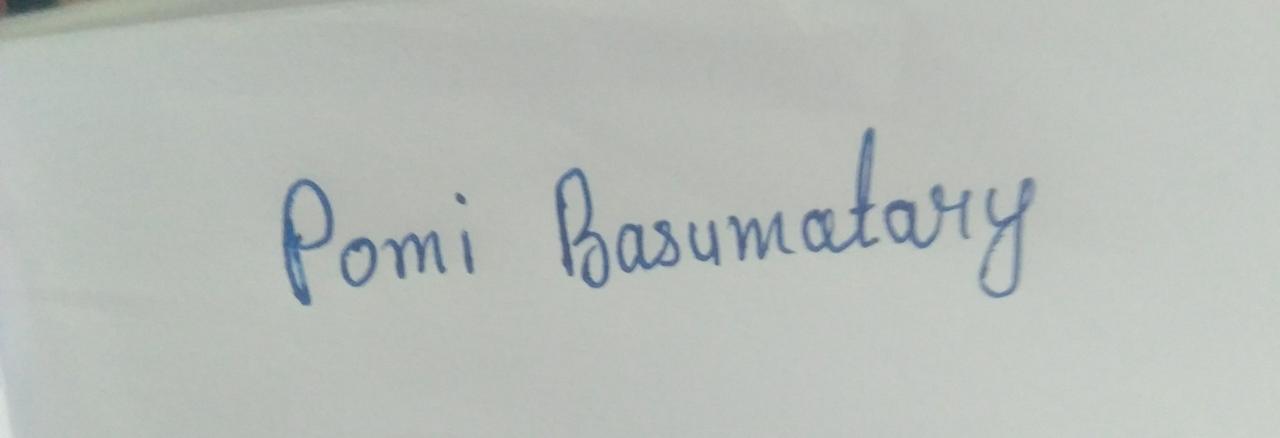 Pomi Basumatary